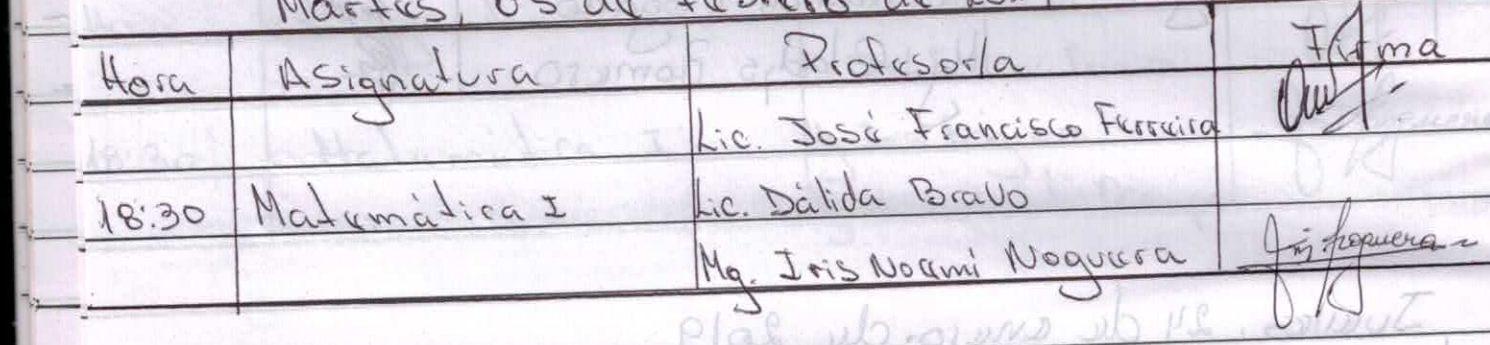 Martes, 05 de febrero de
Hora Asignatura Profesor/a Firma
Lic. José Francisco Ferreira
18:30 Matemática I Lic. Dálida Bravo
Mg. Iris Noemí Noguera
Jueves, 24 de enero de 2019